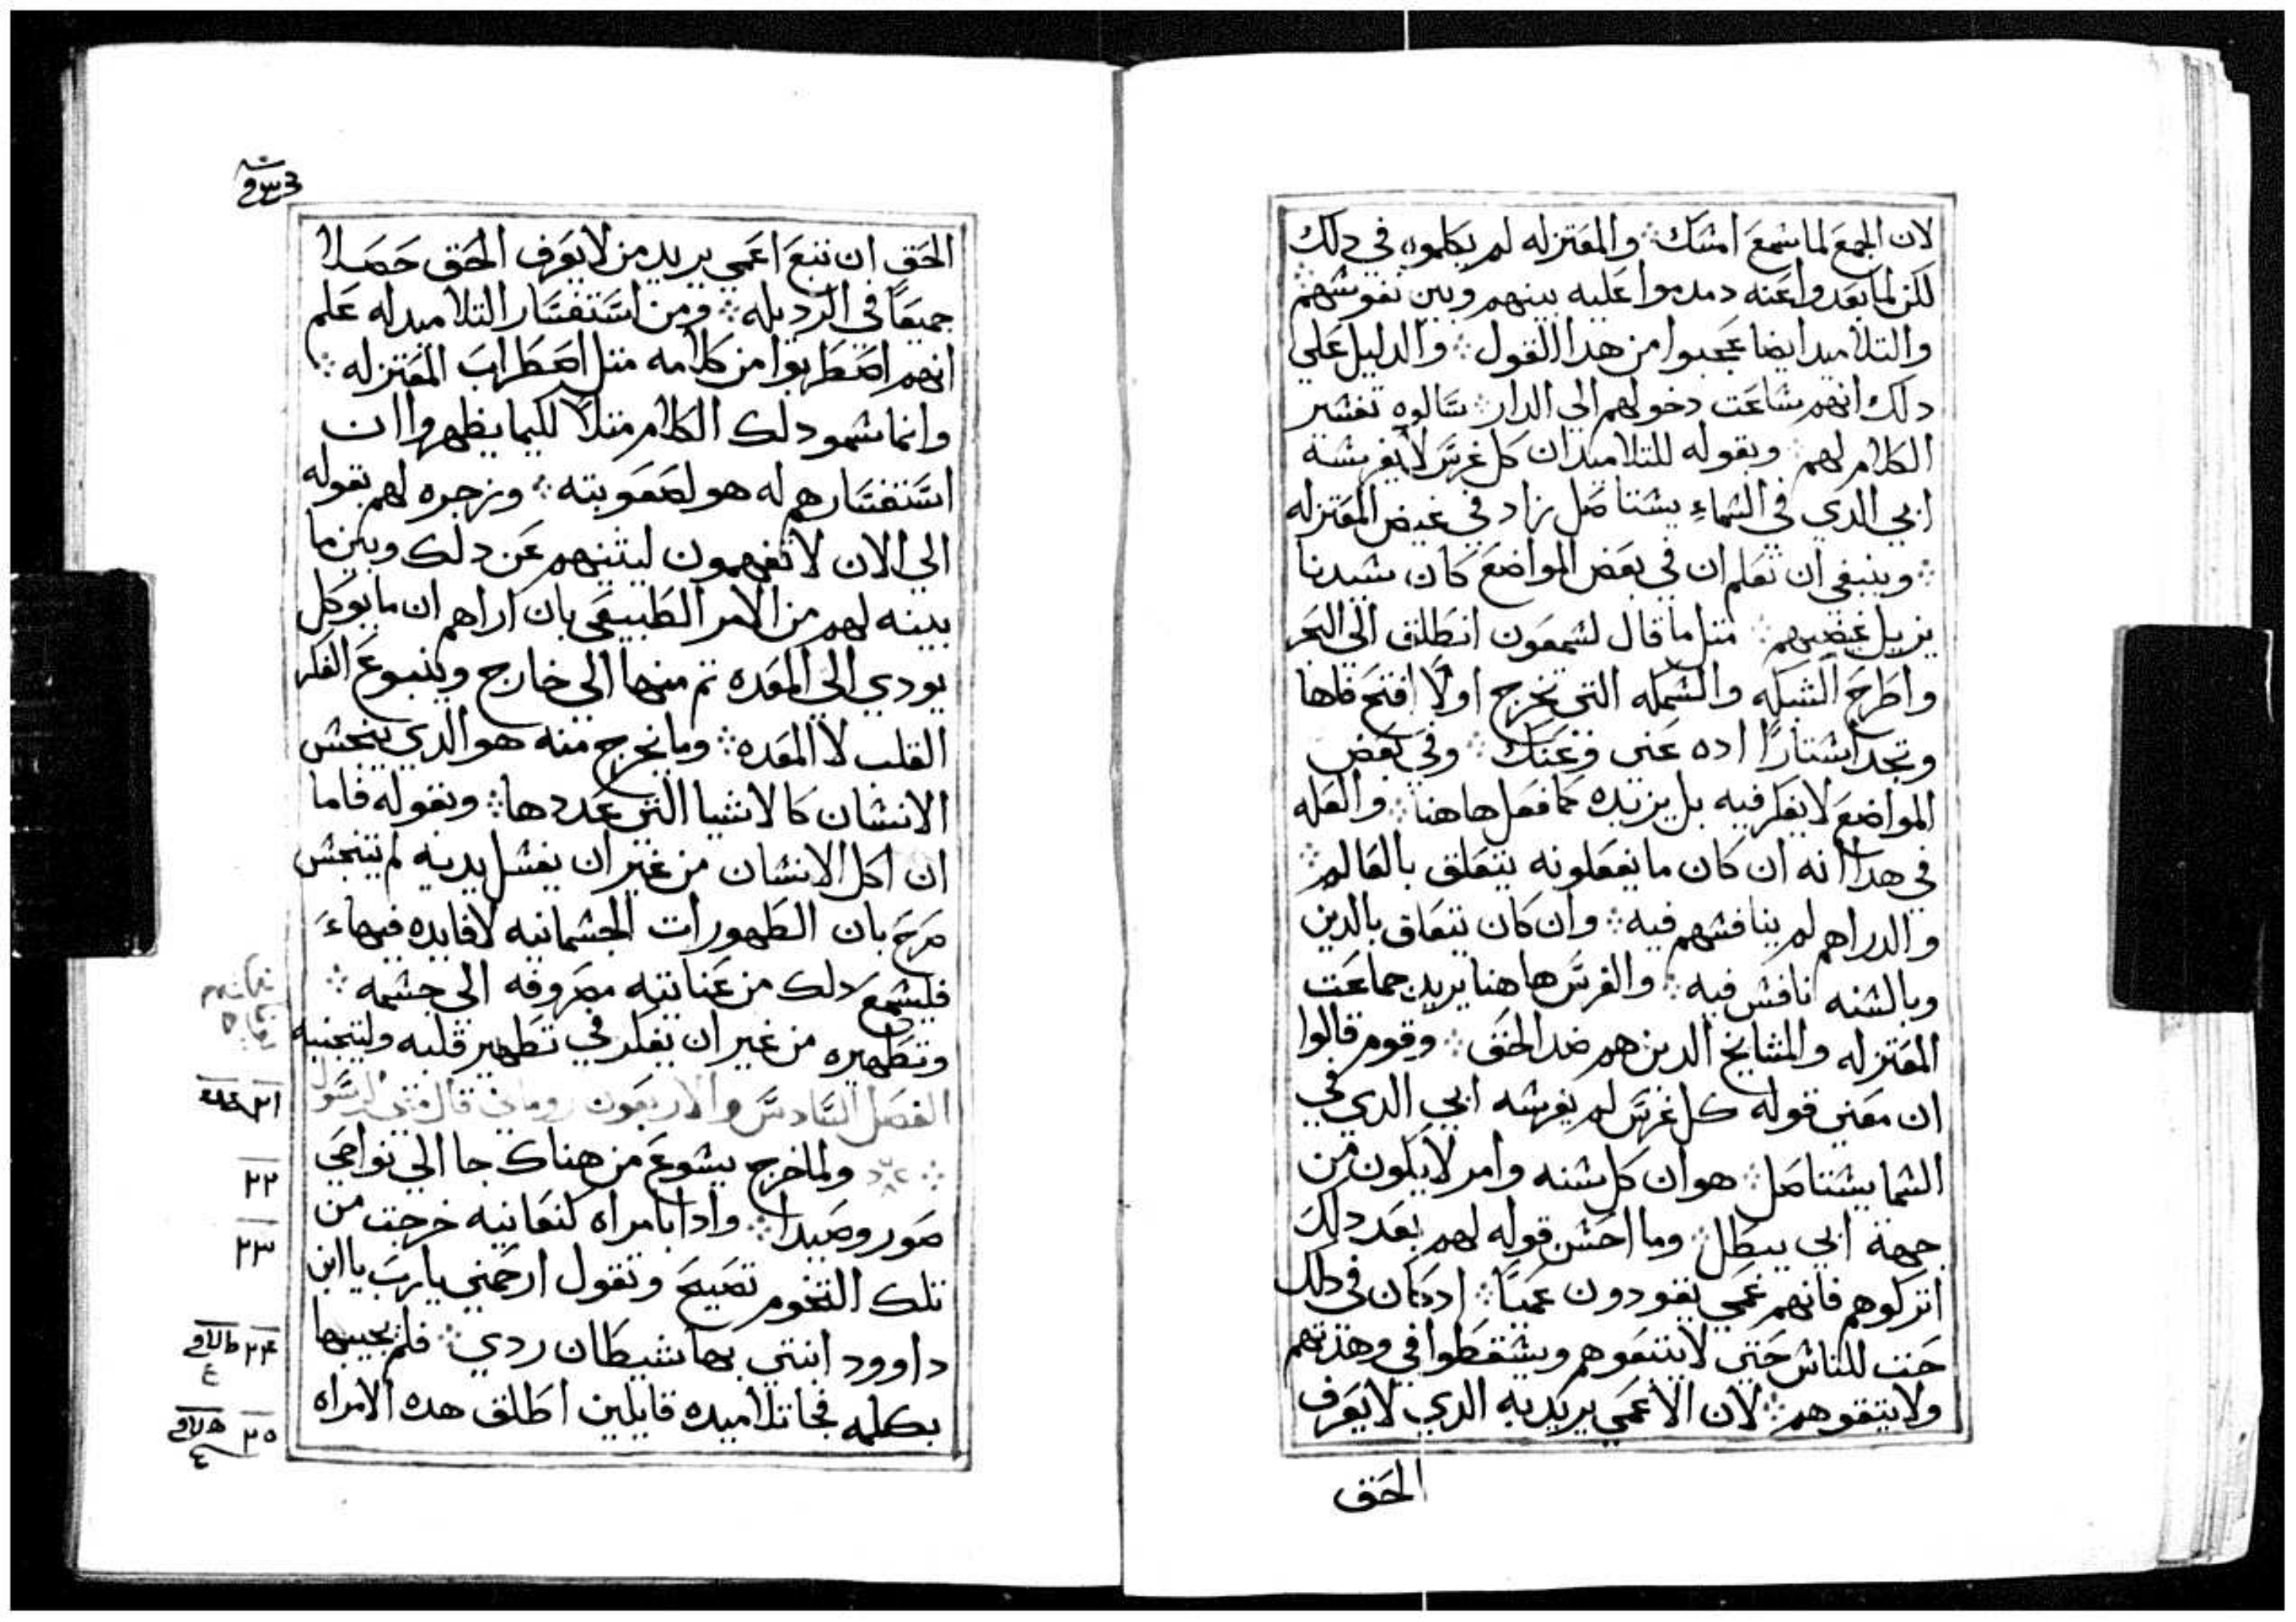 لان الجمع لما سمع امسك ⁘ والمعتزله لم يكلموه في دلك
لكن لما بعدوا عنه دمدموا عليه بينهم وبين نفوسهم ⁘
والتلاميد ايضا عجبوا من هدا القول ⁘ والدليل علي
دلك انهم ساعت دخولهم الي الدار ⁘ سالوه تفسير
الكلام لهم ⁘ وبقوله للتلاميد ان كل غرس لا يغرسه
ابي الدي في السماء يستاصل زاد في غيض المعتزله
⁘ وينبغي ان تعلم ان في بعض المواضع كان سيدنا
يزيل غضبهم ⁘ متل ما قال لسمعون انطلق الي البحر
واطرح الشبكه والسمكه التي تخرج اولا افتح فاها
وتجد استارًا اده عني وعنك ⁘ وفي بعض
المواضع لا يفكر فيه بل يزيده كما فعل هاهنا ⁘ والعله
في هدا انه ان كان ما يفعلونه يتعلق بالعالم ⁘
والدراهم لم ينافسهم فيه ⁘ وان كان يتعلق بالدين
وبالسنه نافس فيه ⁘ والغرس هاهنا يريد جماعت
المعتزله والمشايخ الدين هم ضد الحق ⁘ وقوم قالوا
ان معني قوله كل غرس لم يغرسه ابي الدي في
السما يستاصل ⁘ هو ان كل سنه وامر لا يكون من
جهة ابي يبطل ⁘ وما احسن قوله لهم بعد دلك
اتركوهم فانهم عمي يقودون عميًا ⁘ اد كان في دلك
حتت للناس حتي لا يتبعوهم ويسقطوا في وهدتهم
ولا يتقوهم ⁘ لان الاعمي يريد به الدي لا يعرف
الحق
الحق ان تبع اعمي يريد من لا يعرف الحق حصلا
جميعًا في الرديله ⁘ ومن استفسار التلاميد له علم
انهم اضطربوا من كلامه متل اضطراب المعتزله ⁘
وانما سمو دلك الكلام متلًا لكيما يظهروا ان
استفسارهم له هو لصعوبته ⁘ وزجره لهم بقوله
الي الان لا تفهمون ليثنيهم عن دلك وبين ما
بينه لهم من الامر الطبيعي بان اراهم ان ما يوكل
يودي الي المعده تم منها الي خارج وينبوع الفكر
القلب لا المعده ⁘ وما يخرج منه هو الدي ينجس
الانسان كالاشيا التي عددها ⁘ وبقوله فاما
ان اكل الانسان من غير ان يغسل يديه لم يتنجس
صرح بان الطهورات الجسمانيه لا فايده فيهاء
فليسمع دلك من عنايته مصروفه الي جسمه ⁘
وتطهيره من غير ان يفكر في تطهير قلبه وليتجنبه
الفصل السادس والاربعون روماني قال متي الرسول
⁘ ولما خرج يسوع من هناك جا الي نواحي
صور وصيدا ⁘ وادا بامراه كنعانيه خرجت من
تلك التخوم تصيح وتقول ارحمني يا رب يا ابن
داوود ابنتي بها شيطان ردي ⁘ فلم يجيبها
بكلمه فجا تلاميده قايلين اطلق هده الامراه
٢١
٢٢
٢٣
٢٤
٢٥